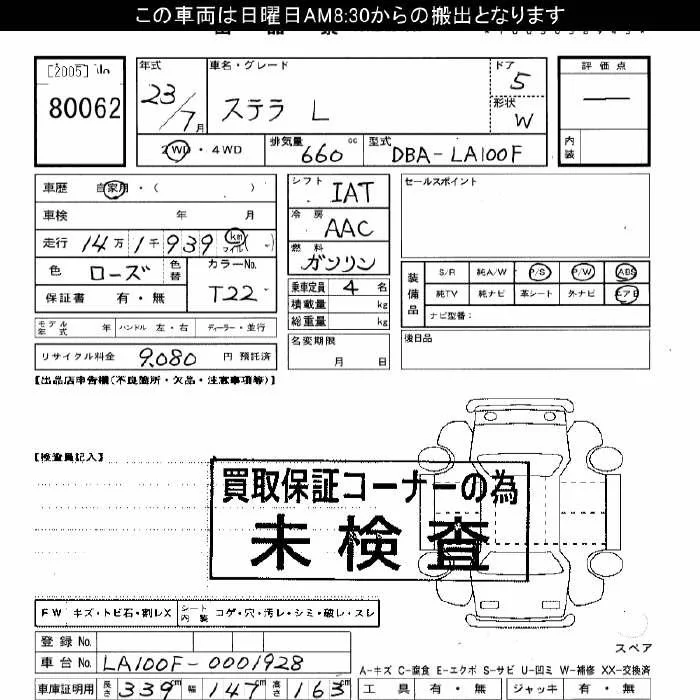 この車両は日曜日AM8:30からの搬出となります
[2005] No
80062
年式 車名・グレード ドア 評価点
23/7月 ステラ L 5 ―
形状 W
2WD・4WD 排気量 660cc 型式 DBA-LA100F 内装
車歴 自家用・( )
車検 年 月
走行 14万1千939 km マイル( )
色 ローズ 色替 カラーNo. T22
保証書 有・無
モデル年式 年 ハンドル 左・右 ディーラー・並行
リサイクル料金 9,080 円 預託済
シフト IAT
冷房 AAC
燃料 ガソリン
乗車定員 4 名
積載量 kg
総重量 kg
名変期限 月 日
セールスポイント
装備品 S/R 純A/W P/S P/W ABS
純TV 純ナビ 革シート 外ナビ エアB
ナビ型番:
後日品
【出品店申告欄(不良箇所・欠品・注意事項等)】
【検査員記入】
買取保証コーナーの為
未検査
FW キズ・トビ石・割レX シート内装 コゲ・穴・汚レ・シミ・破レ・スレ
スペア
登録 No.
車台 No. LA100F-0001928
A-キズ C-腐食 E-エクボ S-サビ U-凹ミ W-補修 XX-交換済
車庫証明用 長さ 339cm 幅 147cm 高さ 163cm 工具 有・無 ジャッキ 有・無